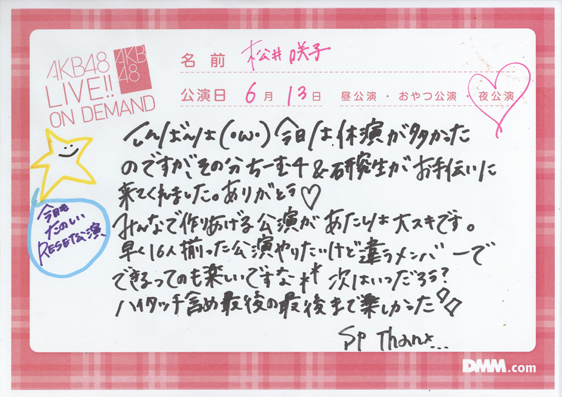 AKB48
LIVE!!
ON DEMAND
AKB
48
名前 松井咲子
公演日 6月13日 昼公演・おやつ公演 夜公演
こんばんは(・ω・)今日は休演が多かった
のですが、その分ちーむ4&研究生がお手伝いに
来てくれました。ありがとう♡
みんなで作りあげる公演があたしは大スキです。
早く16人揃った公演やりたいけど違うメンバーで
できるってのも楽しいですな 次はいつだろう?
ハイタッチ含め最後の最後まで楽しかった
Sp Thanx...
今日も
たのしい
RESET公演
DMM.com